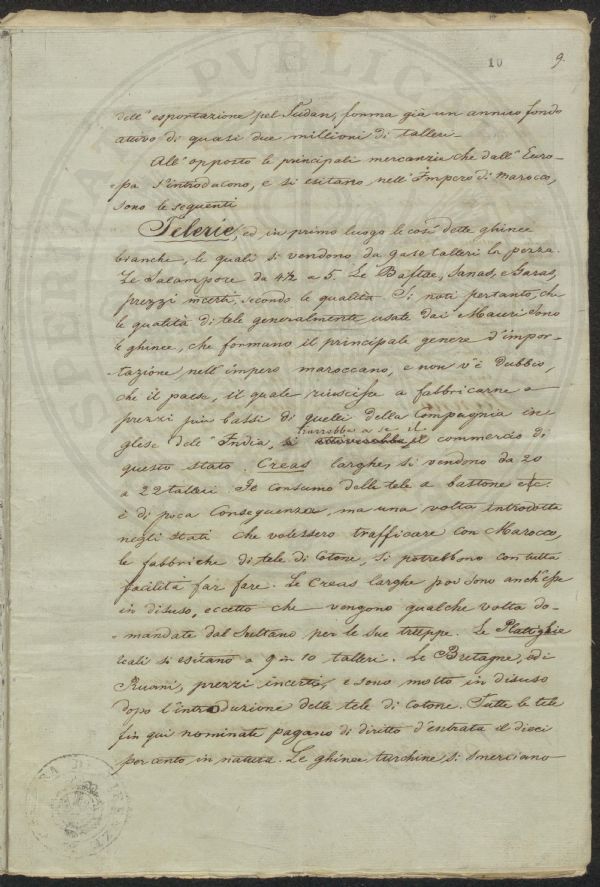 10 9
dell'esportazione pel Sudan, forma già un annuo fondo
attivo di quasi due millioni di talleri.
All'opposto le principali mercanzie che dall'Euro-
-pa s'introducono, e si esitano nell'Impero di Marocco,
sono le seguenti
Telerie, ed in primo luogo le così dette ghinee
bianche, le quali si vendono da 9 a 10 talleri la pezza.
Le Salampore da 4½ a 5. Le Baftae, Sanas, e Garas,
prezzi incerti, secondo le qualità. Si noti pertanto, che
le qualità di tele generalmente usate dai Mauri sono
le ghinee, che formano il principale genere d'impor-
-tazione nell'impero maroccano, e non v'è dubbio,
che il paese, il quale riuscisse a fabbricarne a
prezzi più bassi di quelli della Compagnia in-
trarrebbe a se il
glese dell'India, si attirerebbe il commercio di
questo stato. Creas larghe, si vendono da 20
a 22 talleri. Il consumo delle tele a bastone etc.
è di poca conseguenza, ma una volta introdotte
negli stati che volessero trafficare con Marocco,
le fabbriche di tele di Cotone, si potrebbono con tutta
facilità far fare. Le Creas larghe poi sono anch'esse
in disuso, eccetto che vengono qualche volta do-
-mandate dal Sultano per le sue truppe. Le Plattiglie
reali si esitano a 9 in 10 talleri. Le Bretagne, e di
Ruani, prezzi incerti, e sono molto in disuso
dopo l'introduzione delle tele di Cotone. Tutte le tele
fin qui nominate pagano di diritto d'entrata il dieci
per cento in natura. Le ghinee turchine, si smerciano